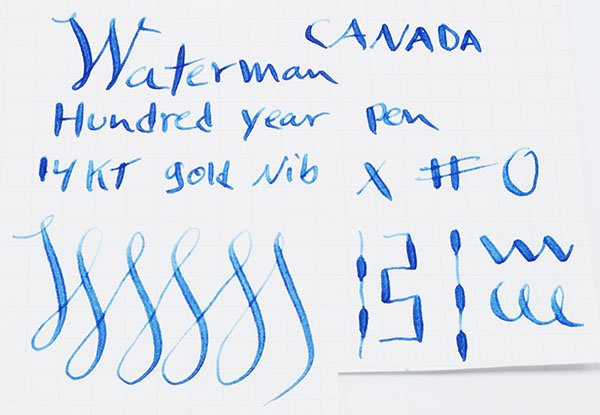 Waterman CANADA
Hundred year pen
14KT gold Nib X # 0